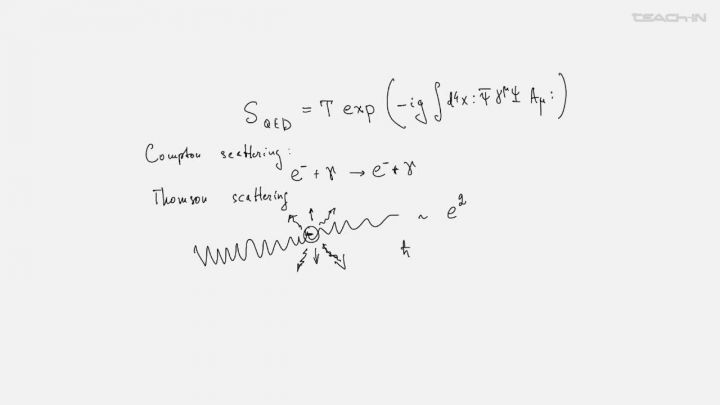 TEACH-IN
S_QED = T exp ( -ig ∫ d⁴x : Ψ̄ γ^μ Ψ A_μ : )
Compton scattering :
e⁻ + γ → e⁻ + γ
Thomson scattering
~ e²
ħ